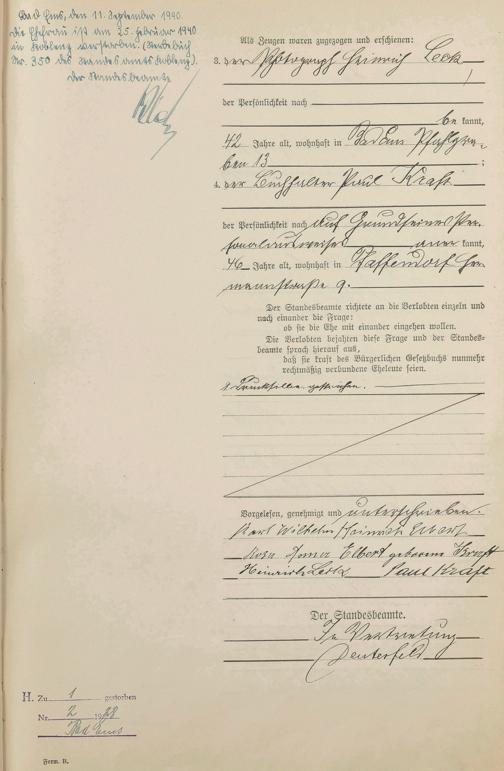 Bad Ems, den 11. September 1940.
Die Ehefrau ist am 25. Februar 1940
in Koblenz verstorben. (Sterbebuch
Nr. 350 des Standesamts Koblenz).
Der Standesbeamte
Als Zeugen waren zugezogen und erschienen:
3. der Photograph Heinrich Leck
der Persönlichkeit nach
be kannt,
42 Jahre alt, wohnhaft in Bad Ems Pfahlgra-
ben 13 ;
4. der Buchhalter Paul Kraft
der Persönlichkeit nach auf Grund seines Per-
sonalausweises aner kannt,
46 Jahre alt, wohnhaft in Pfaffendorf Her-
mannstraße 9.
Der Standesbeamte richtete an die Verlobten einzeln und
nach einander die Frage:
ob sie die Ehe mit einander eingehen wollen.
Die Verlobten bejahten diese Frage und der Standes-
beamte sprach hierauf aus,
daß sie kraft des Bürgerlichen Gesetzbuchs nunmehr
rechtmäßig verbundene Eheleute seien.
Druckstellen gestrichen.
Vorgelesen, genehmigt und unterschrieben.
Karl Wilhelm Heinrich Elbert
Rosa Elbert geborene Kraft
Heinrich Leck Paul Kraft
Der Standesbeamte.
In Vertretung
H. Zu 1 gestorben
Nr. 2 19
Bad Ems
Form. B.